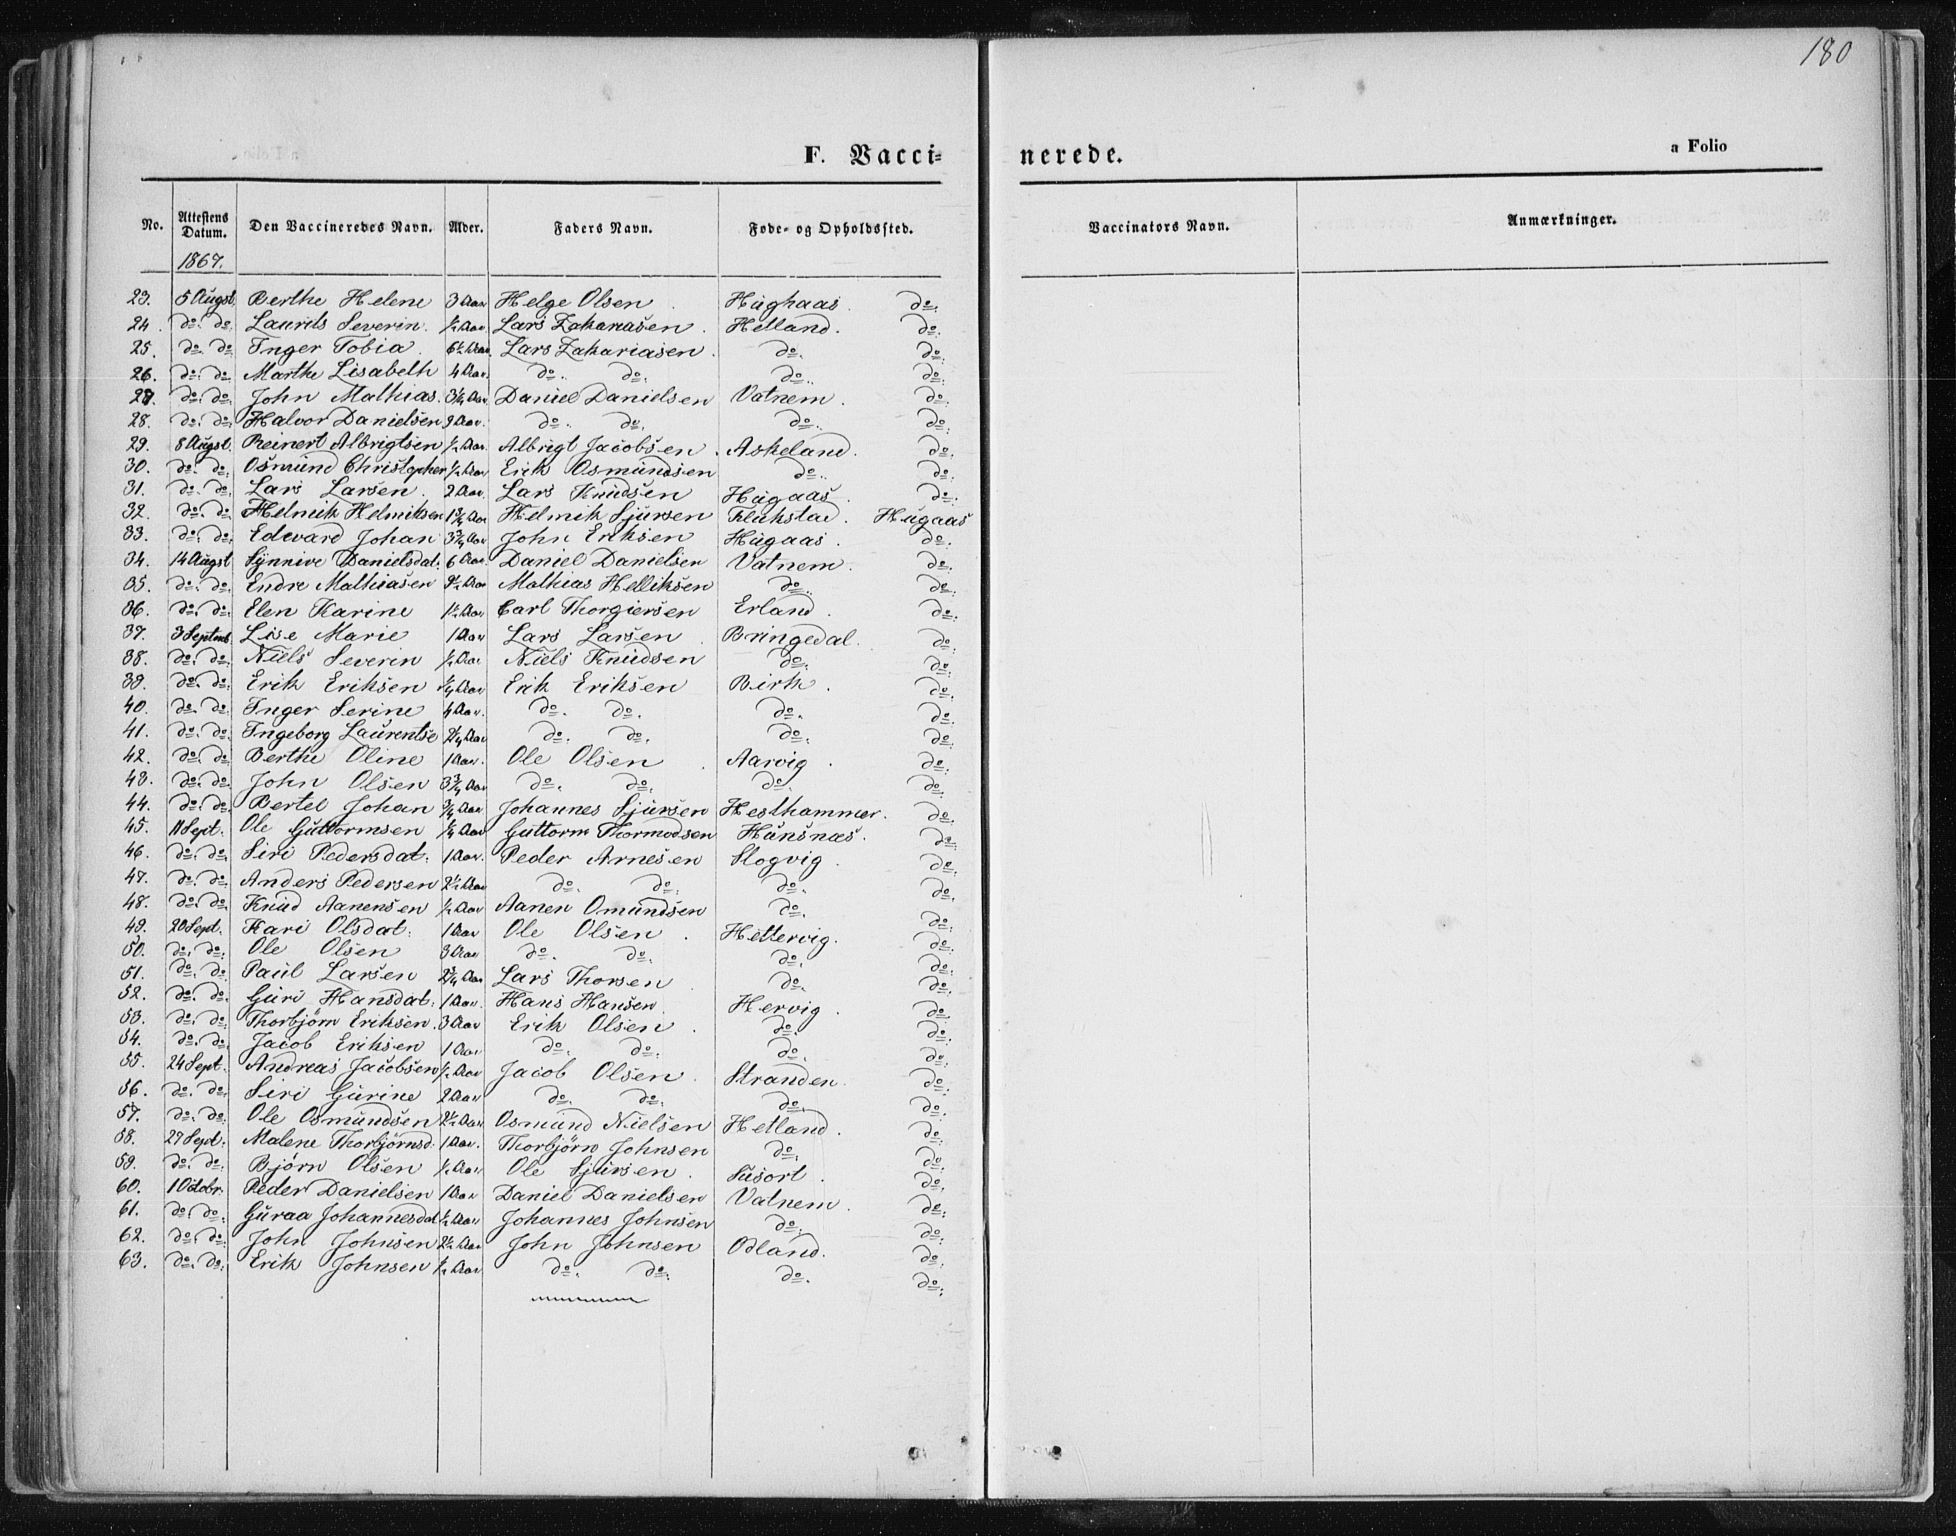 180
F. Vacci- nerede.
a Folio
No. Attestens Datum. Den Vaccineredes Navn. Alder. Faders Navn. Føde- og Opholdssted. Vaccinators Navn. Anmærkninger.
1867.
23. 5 Augst. Berthe Helene 3 Aar Helge Olsen Hughaas. do.
24. do. do. Laurits Severin. 1/2 Aar. Lars Zakariasen. Hetland. do.
25. do. do. Inger Tobia. 6 1/2 Aar. Lars Zakariasen. do. do.
26. do. do. Marthe Lisabeth 4 Aar. do. do. do. do.
27. do. do. John Mathias. 3/4 Aar. Daniel Danielsen Vatnem. do.
28. do. do. Halvor Danielsen 9 Aar. do. do. do. do.
29. 8 Augst. Reinert Albrigtsen 1/2 Aar. Albrigt Jacobsen. Askeland. do.
30. do. do. Osmund Christopher 1/2 Aar Erik Osmundsen do. do.
31. do. do. Lars Larsen. 2 Aar. Lars Knudsen Hugaas. do.
32. do. do. Helmik Helmiksen 1 3/4 Aar Helmik Sjursen Flukstad. Hugaas
33. do. do. Edward Johan 3 3/4 Aar John Eriksen Hugaas. do.
34. 14 Augst Synnive Danielsdat. 6 Aar. Daniel Danielsen Vatnem. do.
35. do. do. Endre Mathiasen Aar Mathias Helliksen do. do.
36. do. do. Elen Karine 1 1/2 Aar Carl Thorgiersen Erland. do.
37. 3 Septmb. Lise Marie 1 Aar Lars Larsen. Bringedal. do.
38. do. do. Niels Severin 1/2 Aar Niels Knudsen do. do.
39. do. do. Erik Eriksen 1/4 Aar Erik Eriksen Birk. do.
40. do. do. Inger Serine 4 Aar. do. do. do. do.
41. do. do. Ingeborg Laurentse 2 1/4 Aar do. do. do. do.
42. do. do. Berthe Oline 1 Aar. Ole Olsen. Aarvig. do.
43. do. do. John Olsen 3 3/4 Aar do. do. do. do.
44. do. do. Bertel Johan 3/4 Aar Johannes Sjursen Hesthammer. do.
45. 11 Sept. Ole Guttormsen 1/4 Aar Guttorm Thormodsen Hunsnæs. do.
46. do. do. Siri Pedersdat. 1 Aar. Peder Arnesen Slogvig. do.
47. do. do. Anders Pedersen 2 1/2 Aar do. do. do. do.
48. do. do. Knud Aanensen 1/2 Aar Aanen Omundsen do. do.
49. 20 Sept. Kari Olsdat. 1 Aar Ole Olsen. Hettervig. do.
50. do. do. Ole Olsen 3 Aar do. do. do. do.
51. do. do. Paul Larsen 2 3/4 Aar Lars Thorsen do. do.
52. do. do. Guri Hansdat. 1 Aar. Hans Hansen Hervig. do.
53. do. do. Thorbjørn Eriksen. 3 Aar Erik Olsen. do. do.
54. do. do. Jacob Eriksen 1 Aar do. do. do. do.
55. 24 Sept. Andreas Jacobsen 1/2 Aar Jacob Olsen. Stranden. do.
56. do. do. Siri Gurine 2 Aar do. do. do. do.
57. do. do. Ole Osmundsen 2 1/2 Aar Osmund Nielsen Hetland. do.
58. 27 Sept. Malene Thorbjørnsd. 1 Aar. Thorbjørn Johnsen do. do.
59. do. do. Bjørn Olsen 1/2 Aar Ole Sjursen. Susort. do.
60. 1 Octobr. Peder Danielsen 1 Aar Daniel Danielsen Vatnem. do.
61. do. do. Guraa Johannesdat 1/2 Aar Johannes Johnsen do. do.
62. do. do. John Johnsen 2 1/2 Aar John Johnsen Odland. do.
63. do. do. Erik Johnsen 1/2 Aar do. do. do. do.